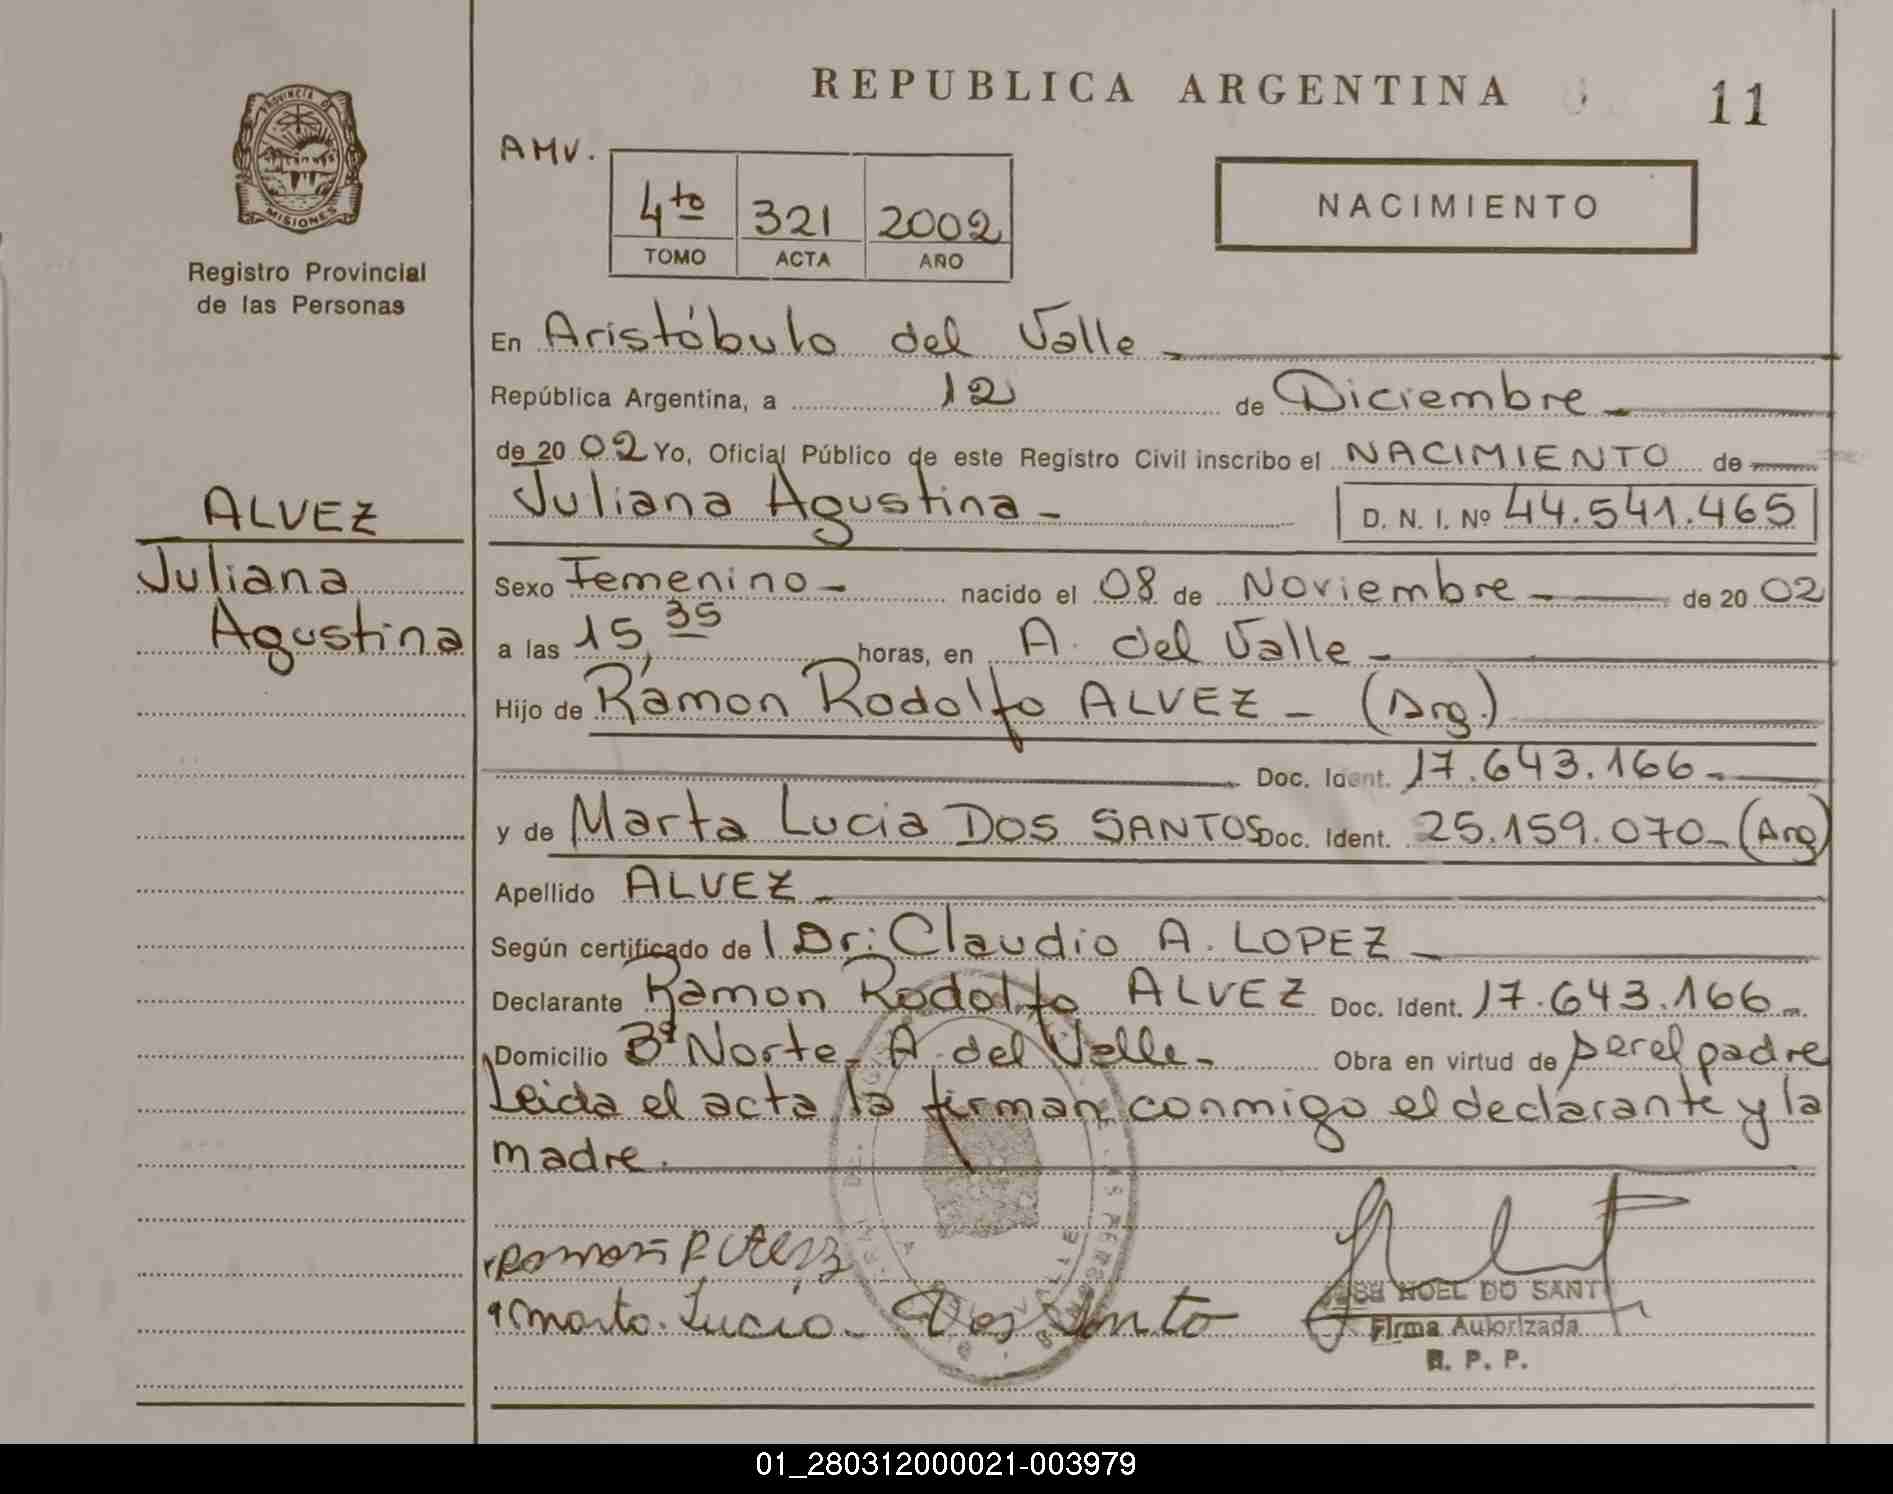 REPUBLICA ARGENTINA
11
PROVINCIA DE
MISIONES
Registro Provincial
de las Personas
AMV.
4to 321 2002
TOMO ACTA AÑO
NACIMIENTO
En Aristóbulo del Valle
República Argentina, a 12 de Diciembre
de 20 02 Yo, Oficial Público de este Registro Civil inscribo el NACIMIENTO de
Juliana Agustina - D. N. I. Nº 44.541.465
ALVEZ
Juliana
Agustina
Sexo Femenino - nacido el 08 de Noviembre - de 20 02
a las 15,35 horas, en A. del Valle -
Hijo de Ramon Rodolfo ALVEZ - (Arg.)
Doc. Ident. 17.643.166 -
y de Marta Lucia DOS SANTOS Doc. Ident. 25.159.070 - (Arg)
Apellido ALVEZ -
Según certificado de l Dr: Claudio A. LOPEZ -
Declarante Ramon Rodolfo ALVEZ Doc. Ident. 17.643.166 -
Domicilio Bº Norte - A. del Valle - Obra en virtud de ser el padre
Leida el acta la firman conmigo el declarante y la
madre.
Marto. Lucio. Dos Santo
NOEL DO SANT
Firma Autorizada
R. P. P.
01_280312000021-003979